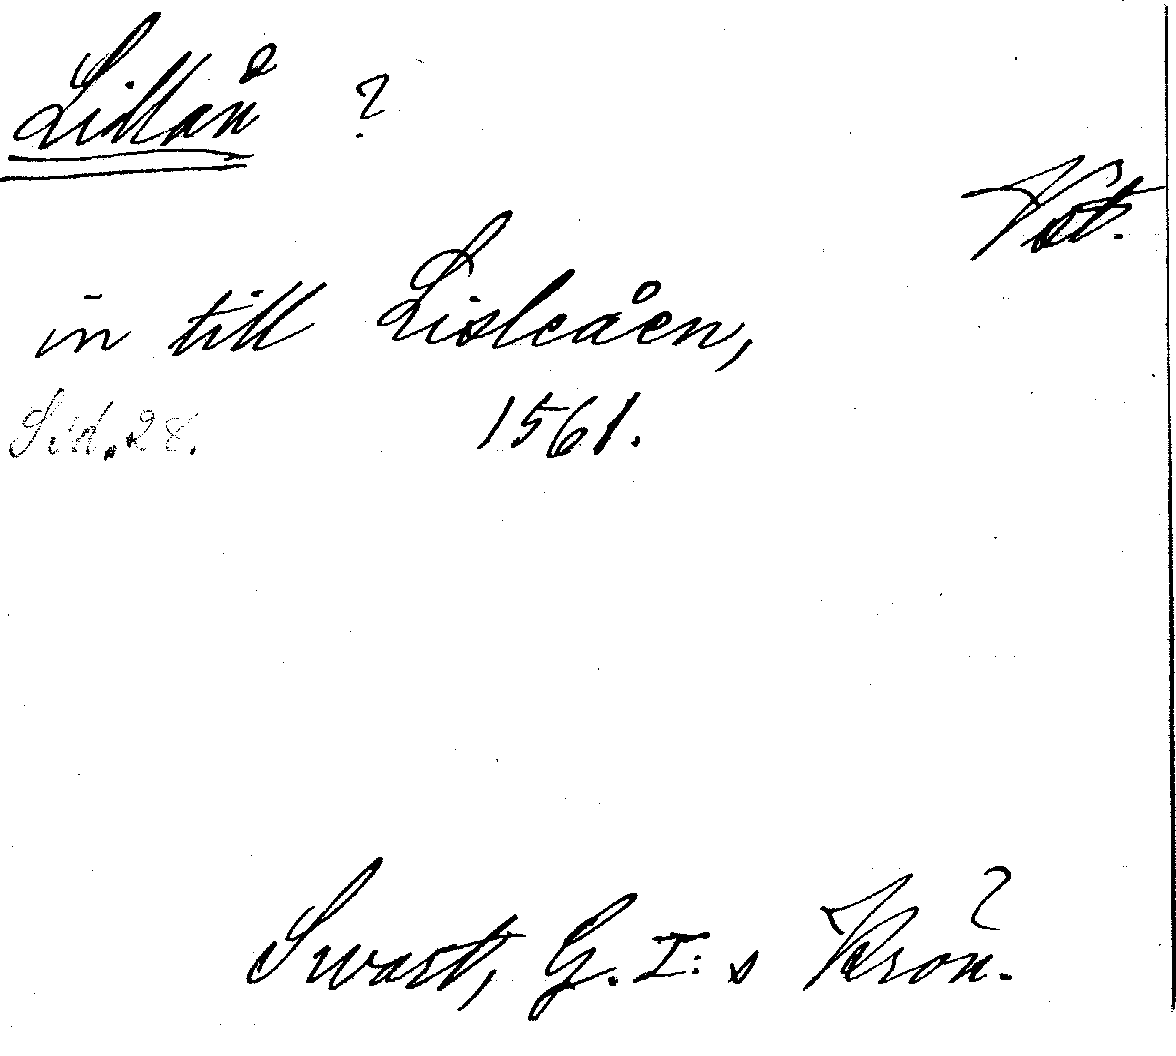 Lillån ?
Vst.
in till Lisleåen,
Sid. 28. 1561.
Swart, G. I:s Krön.